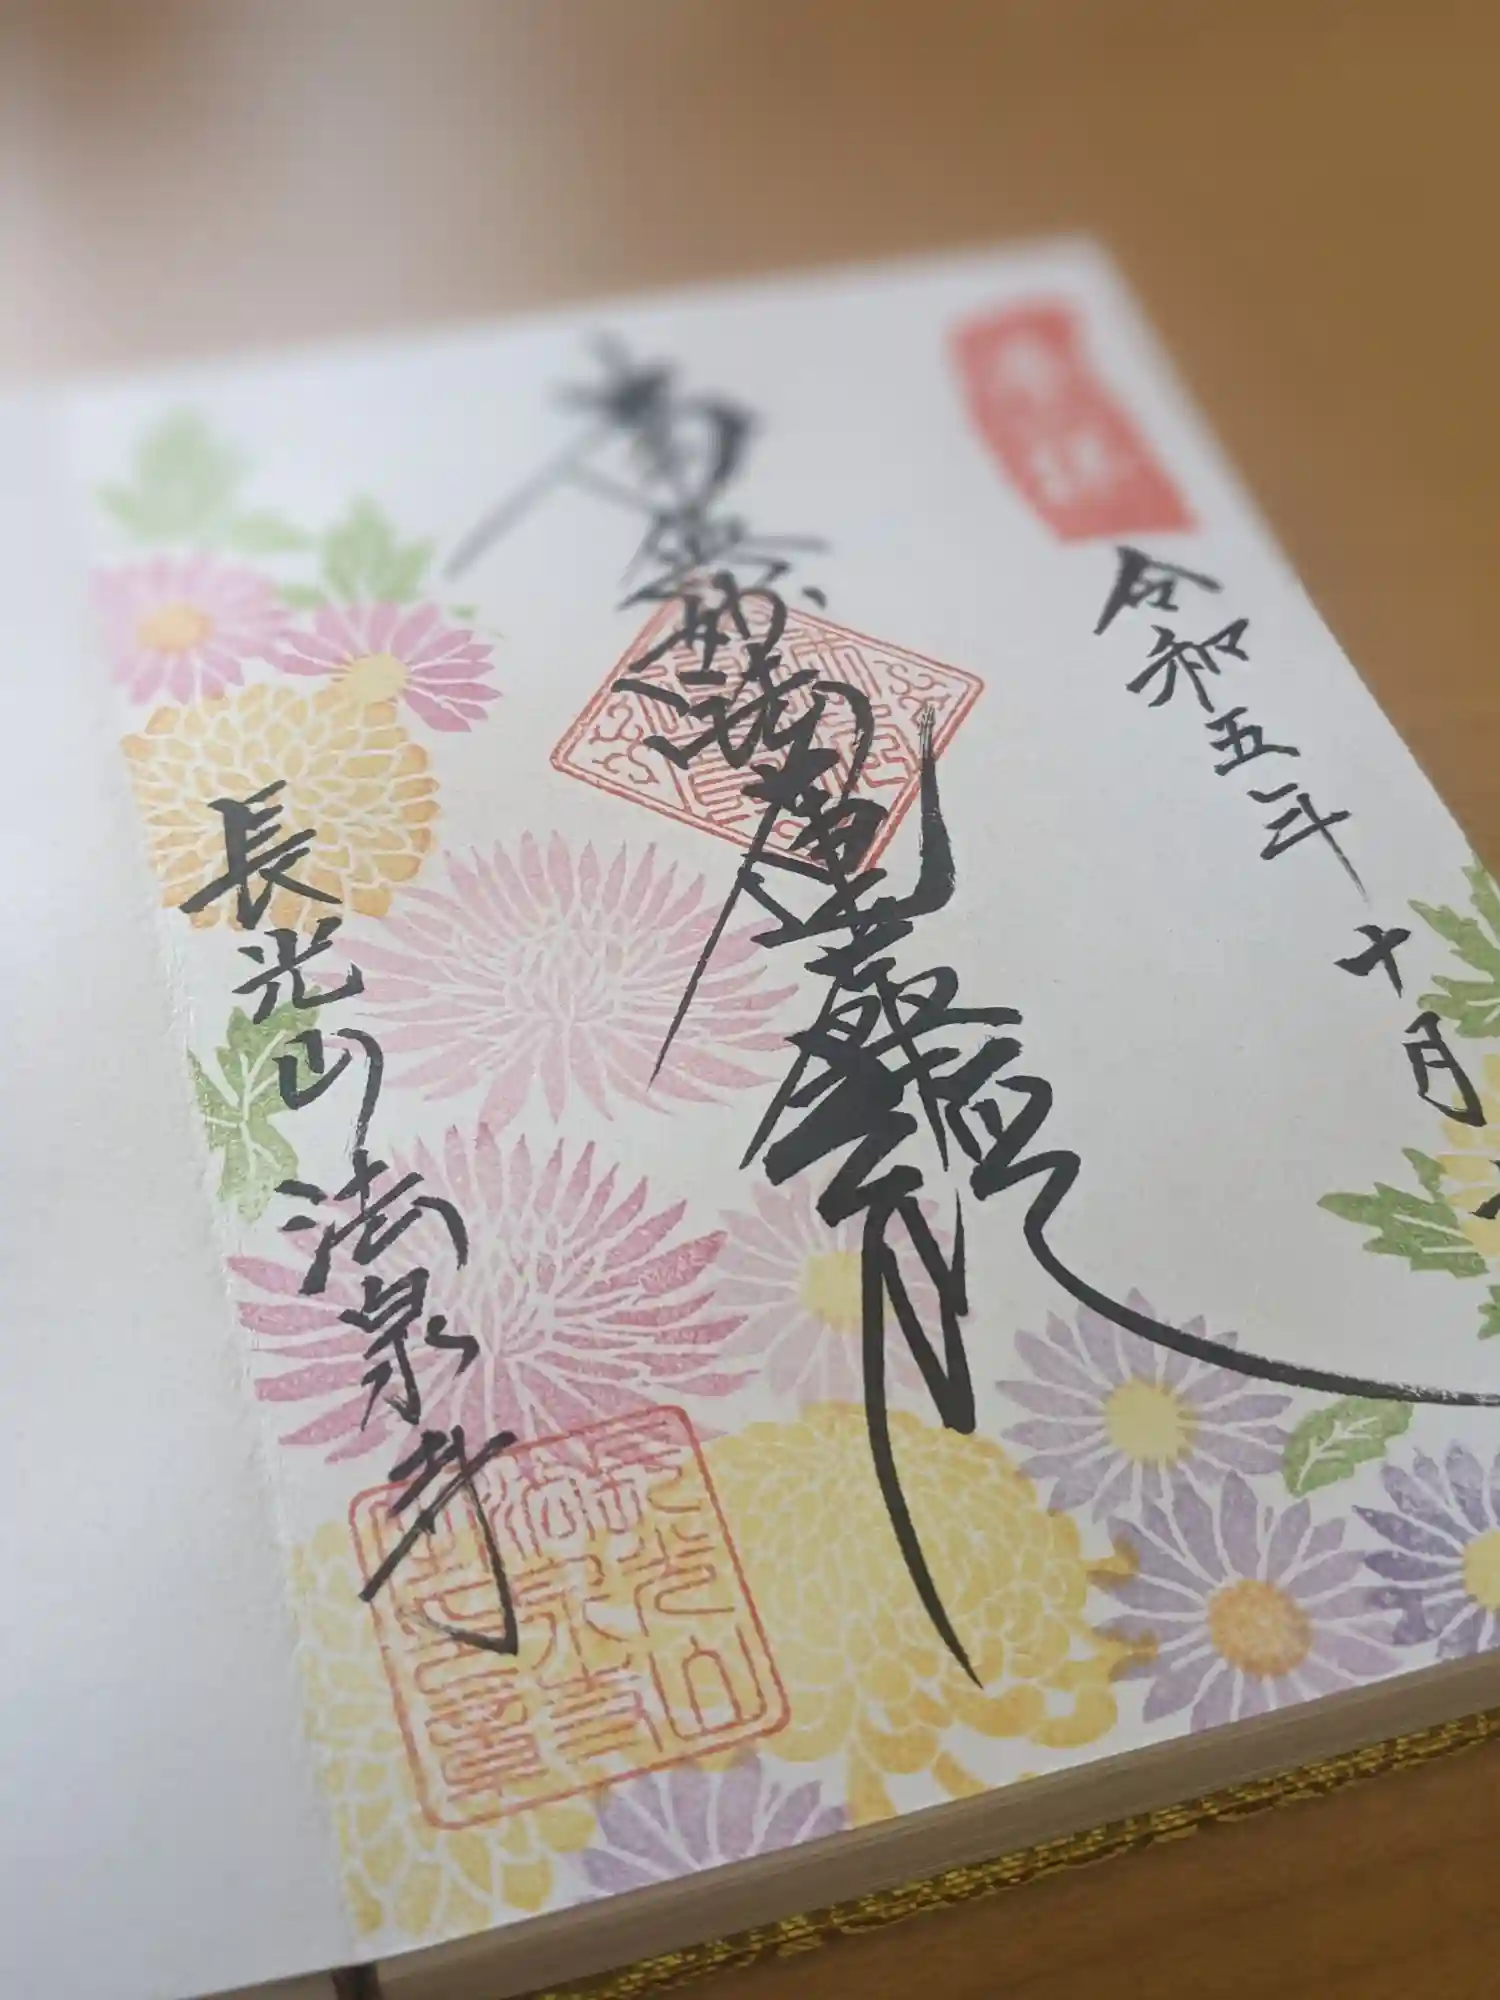 令和五年十月
南無妙法蓮華經
長光山法泉寺
長光山
法泉寺